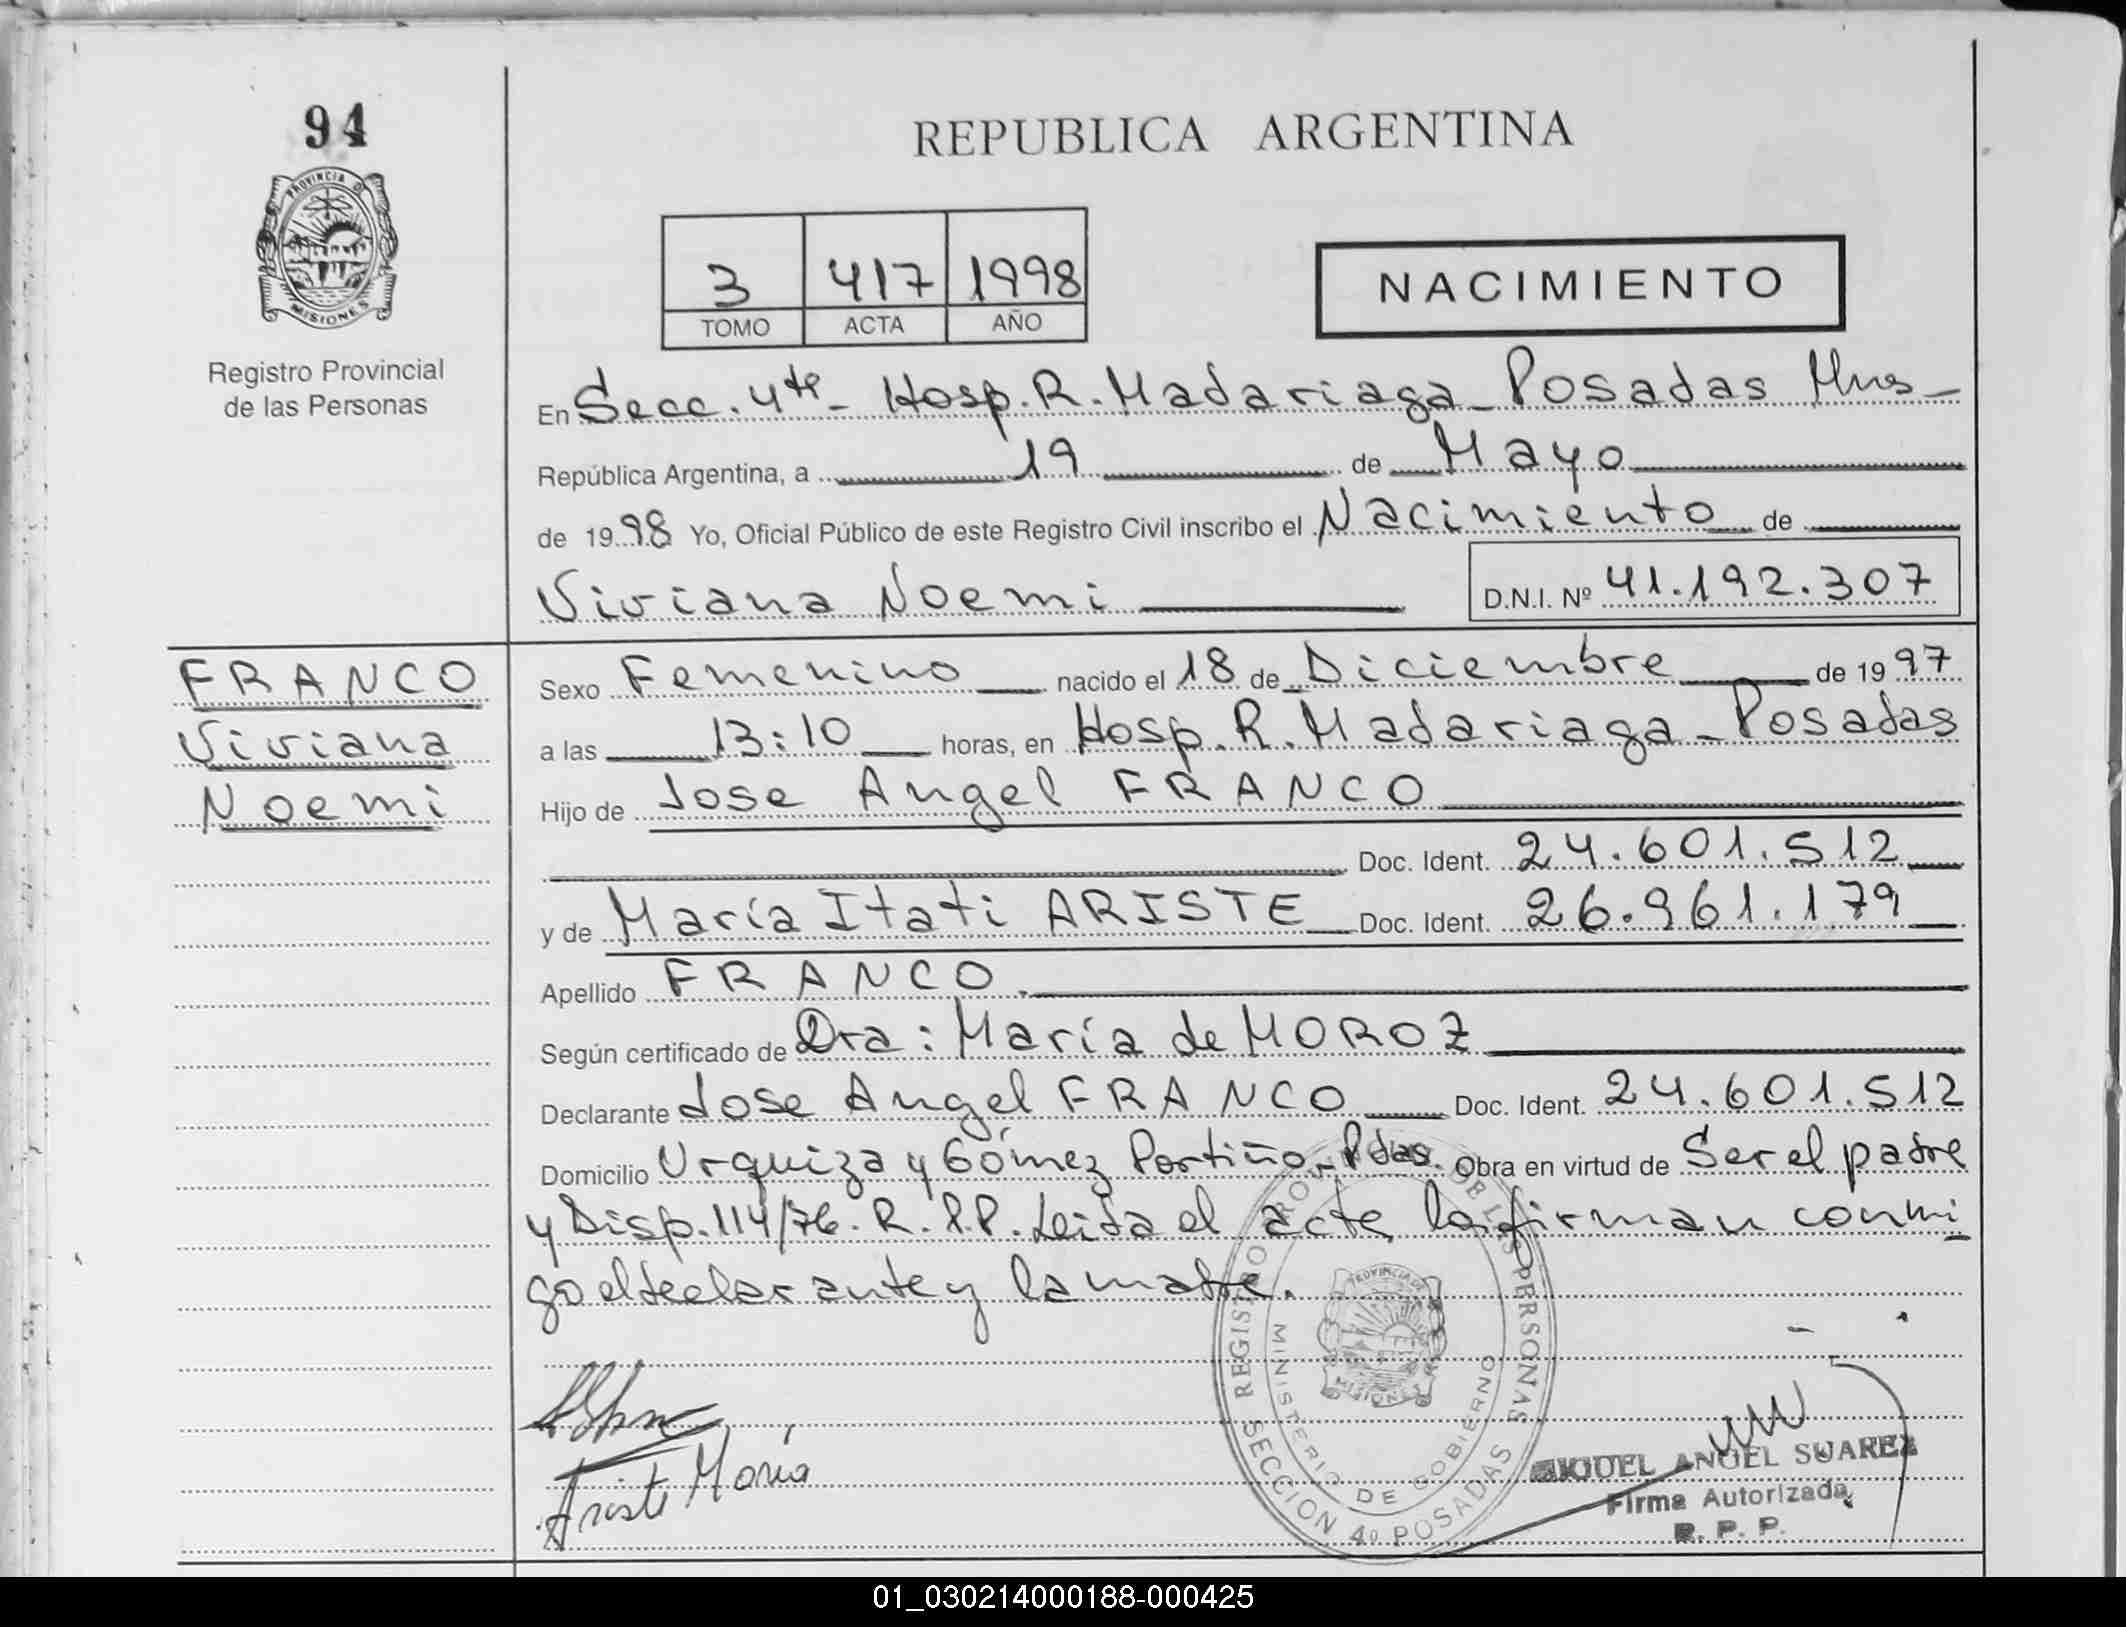 94
PROVINCIA DE
MISIONES
Registro Provincial
de las Personas
REPUBLICA ARGENTINA
3 417 1998
TOMO ACTA AÑO
NACIMIENTO
En Secc. 4ta - Hosp. R. Madariaga - Posadas Mnes -
República Argentina, a 19 de Mayo
de 1998 Yo, Oficial Público de este Registro Civil inscribo el Nacimiento de
Viviana Noemi D.N.I. Nº 41.192.307
FRANCO
Viviana
Noemi
Sexo Femenino nacido el 18 de Diciembre de 1997
a las 13:10 horas, en Hosp. R. Madariaga - Posadas
Hijo de Jose Angel FRANCO
Doc. Ident. 24.601.512
y de María Itati ARISTE Doc. Ident. 26.961.179
Apellido FRANCO.
Según certificado de Dra: María de MOROZ
Declarante Jose Angel FRANCO Doc. Ident. 24.601.512
Domicilio Urquiza y Gómez Portiño - Pdas. Obra en virtud de Ser el padre
y Disp. 114/76. R.P.P. Leida el acta, la firman conmi
go el declarante y la madre.
REGISTRO PROVINCIAL DE LAS PERSONAS
MINISTERIO DE GOBIERNO
PROVINCIA DE
MISIONES
SECCION 4º POSADAS
Ariste María
MIGUEL ANGEL SUAREZ
Firma Autorizada
R. P. P.
01_030214000188-000425